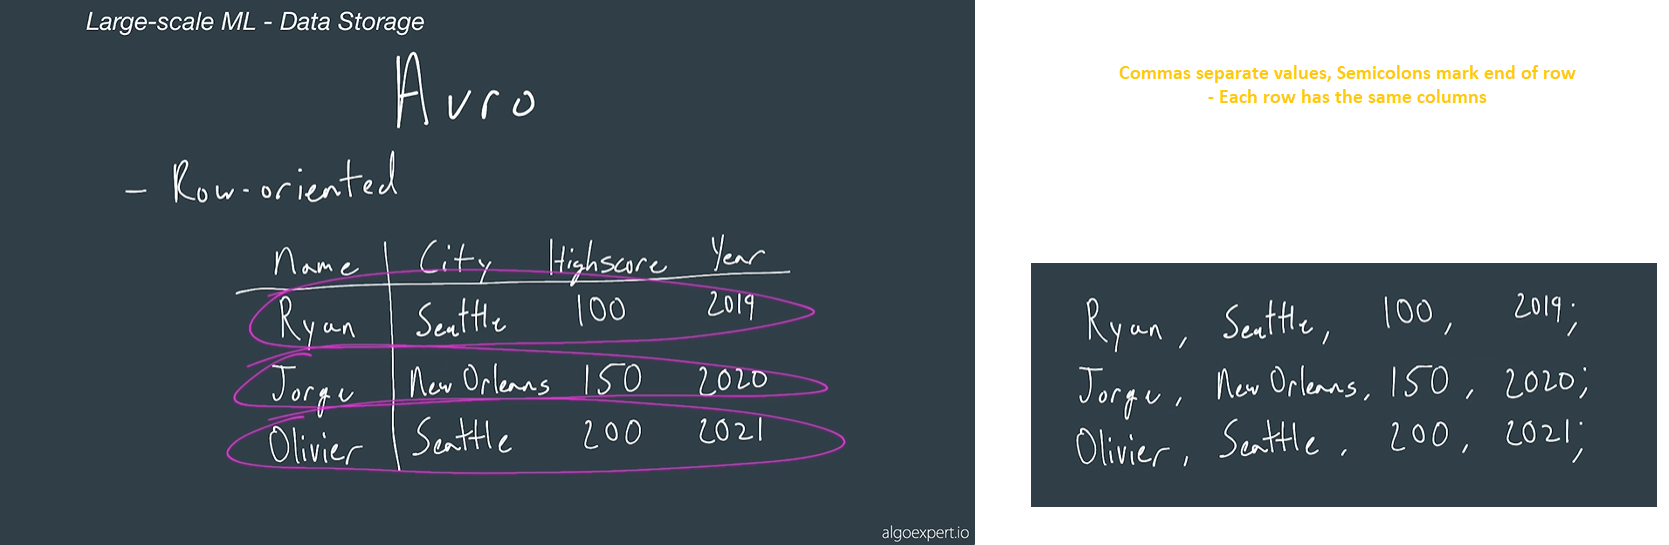 Large-scale ML - Data Storage
Avro
- Row-oriented
Name City Highscore Year
Ryan Seattle 100 2019
Jorge New Orleans 150 2020
Olivier Seattle 200 2021
algoexpert.io
Commas separate values, Semicolons mark end of row
- Each row has the same columns
Ryan, Seattle, 100, 2019;
Jorge, New Orleans, 150, 2020;
Olivier, Seattle, 200, 2021;